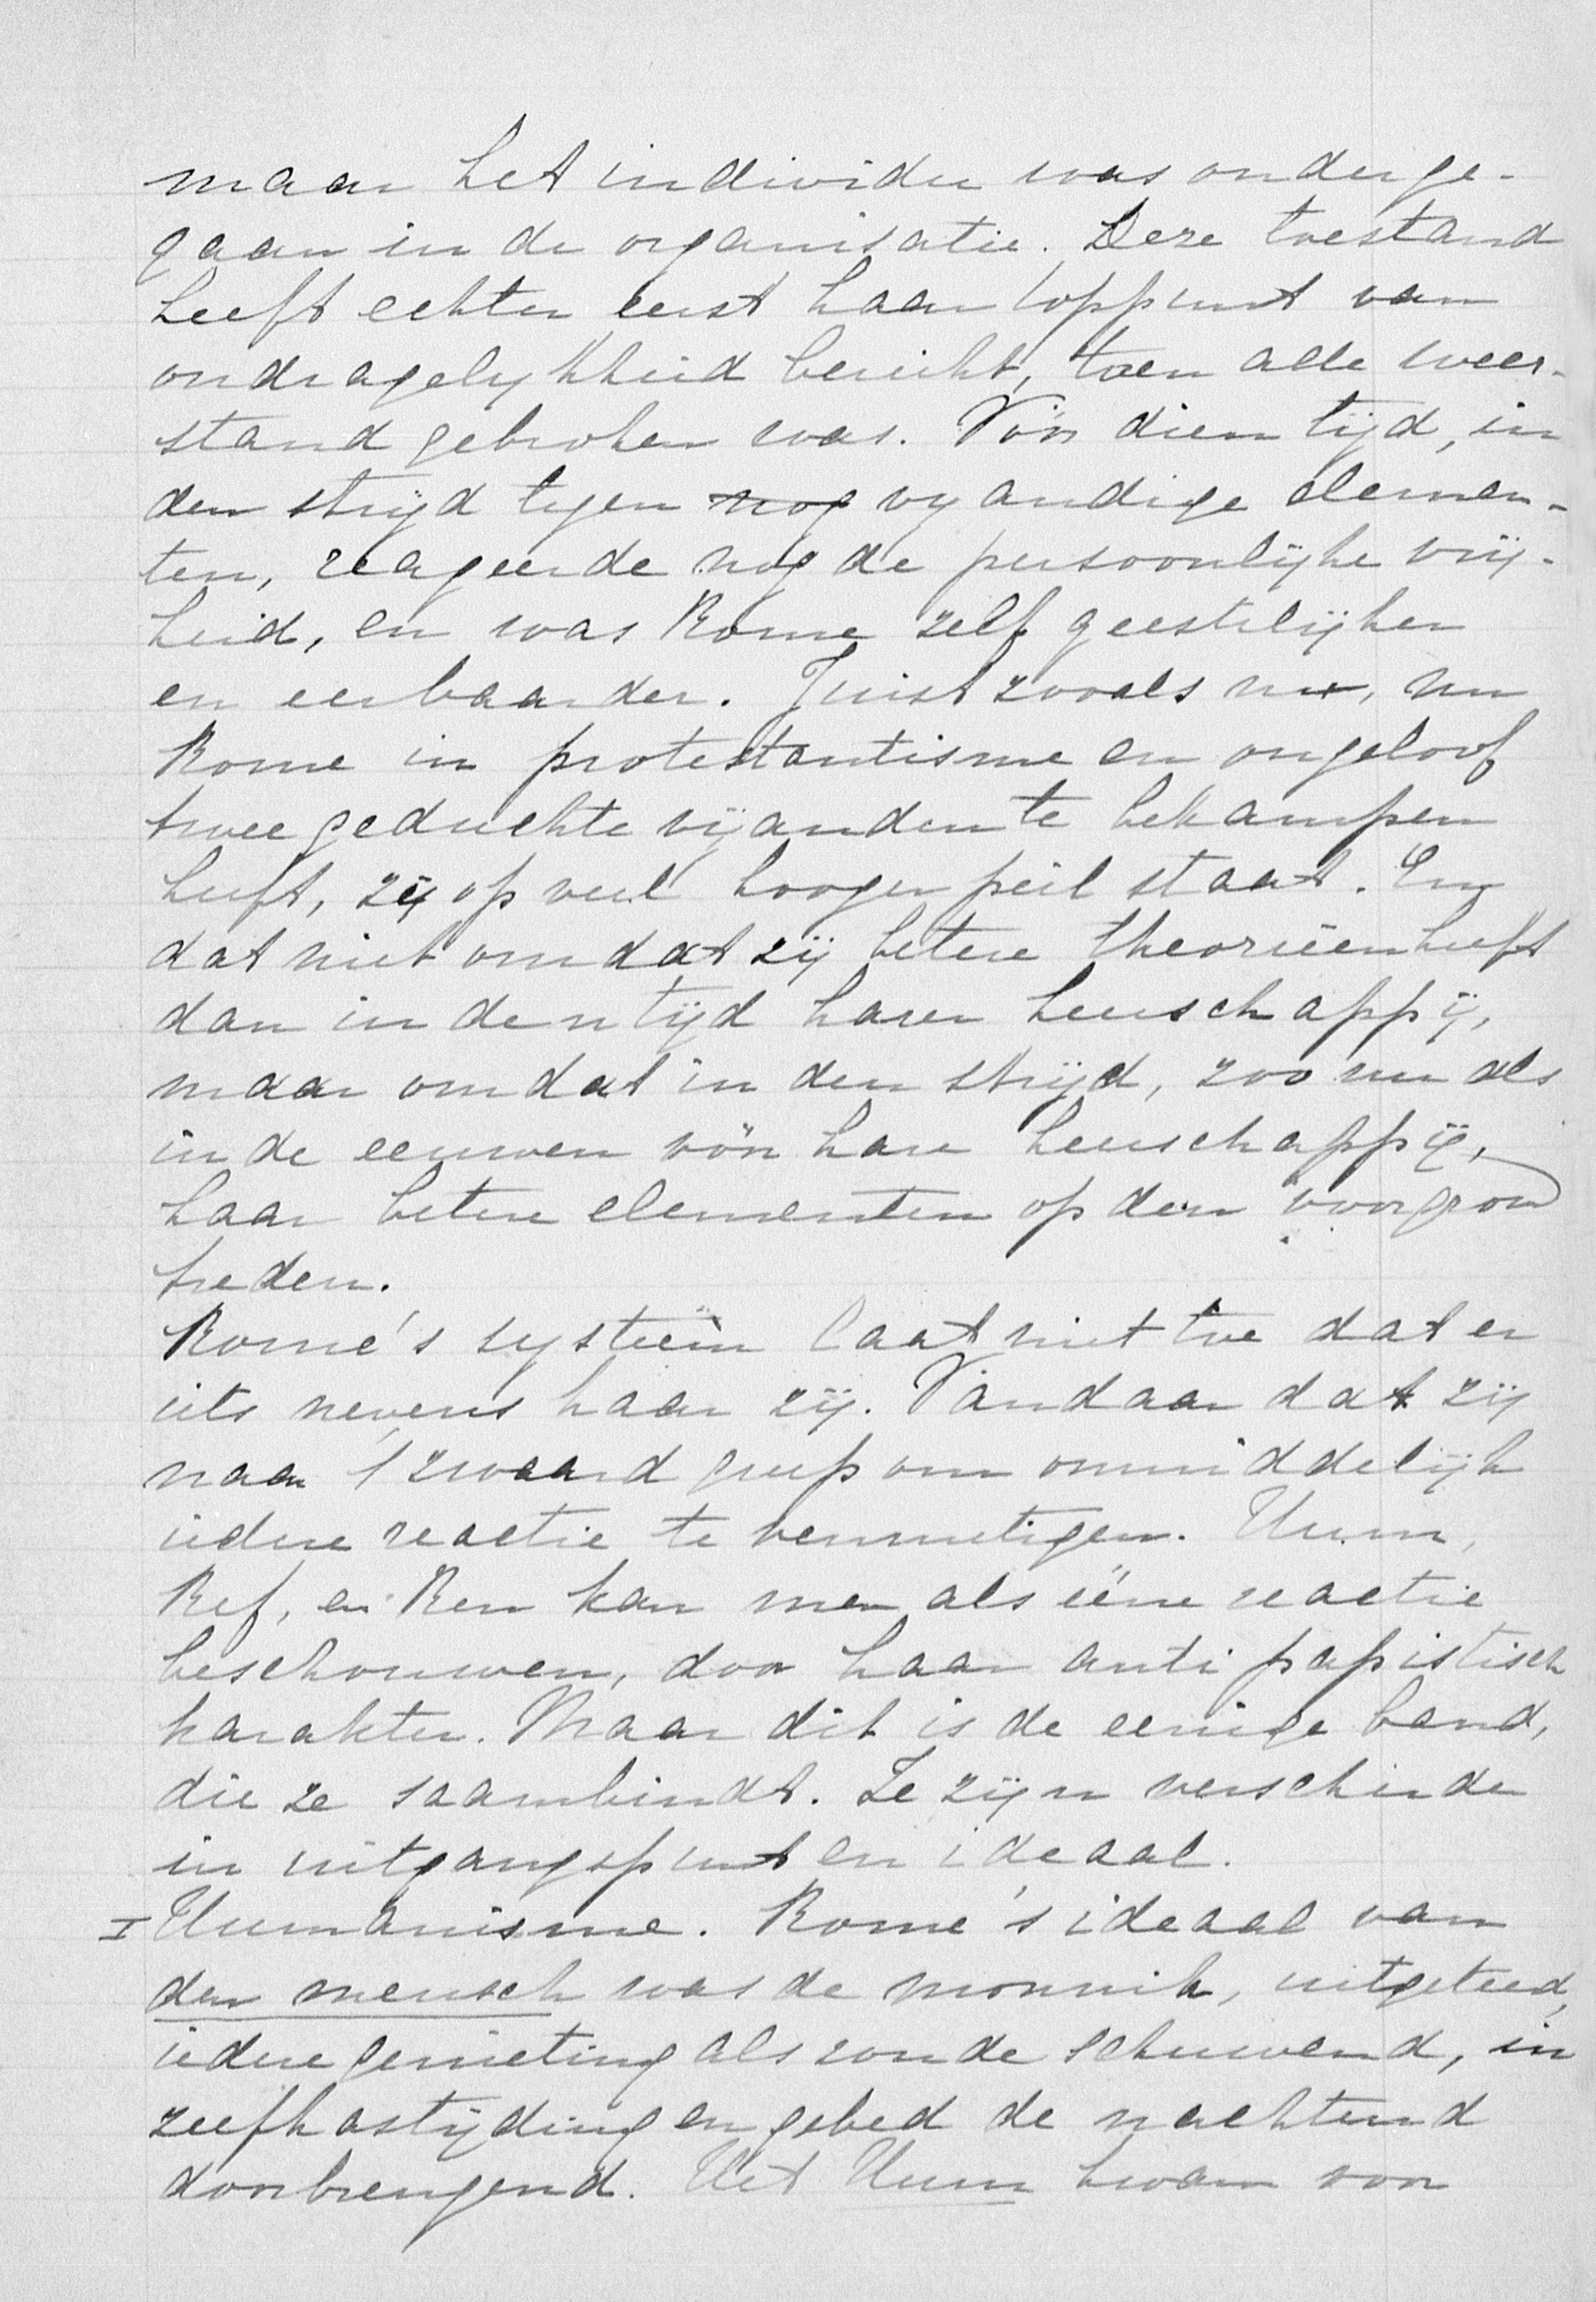 maar het individu was onderge-
gaan in de organisatie. Deze toestand
heeft echter eerst haar toppunt van
ondragelykheid bereikt, toen alle weer-
stand gebroken was. Vóór dien tijd, in
den strijd tegen nog vyandige elemen-
ten, reageerde nog de persoonlijke vrij-
heid, en was Rome zelf geestelijker
en eerbaarder. Juist zooals nu, nu
Rome in protestantisme en ongeloof
twee geduchte vijanden te bekampen
heeft, zij op veel hooger peil staat. En
dat niet omdat zij betere theorieën heeft
dan in den tijd harer heerschappij,
maar omdat in den strijd, zoo nu als
in de eeuwen vóór hare heerschappij,
haar betere elementen op den voorgrond
treden.
Rome's systeem laat niet toe dat er
iets nevens haar zij. Vandaar dat zij
naar 't zwaard greep om onmiddelijk
iedere reactie te vernietigen. Hum,
Ref, en Ren kan men als ééne reactie
beschouwen, door haar anti papistisch
karakter. Maar dit is de eenige band,
die ze saambindt. Ze zijn verscheiden
in uitgangspunt en ideaal.
I Humanisme. Rome's ideaal van
den mensch was de monnik, uitgeteerd,
iedere genieting als zonde schuwend, in
zelfkastijding en gebed de nachtend
doorbrengend. Het Hum kwam voor